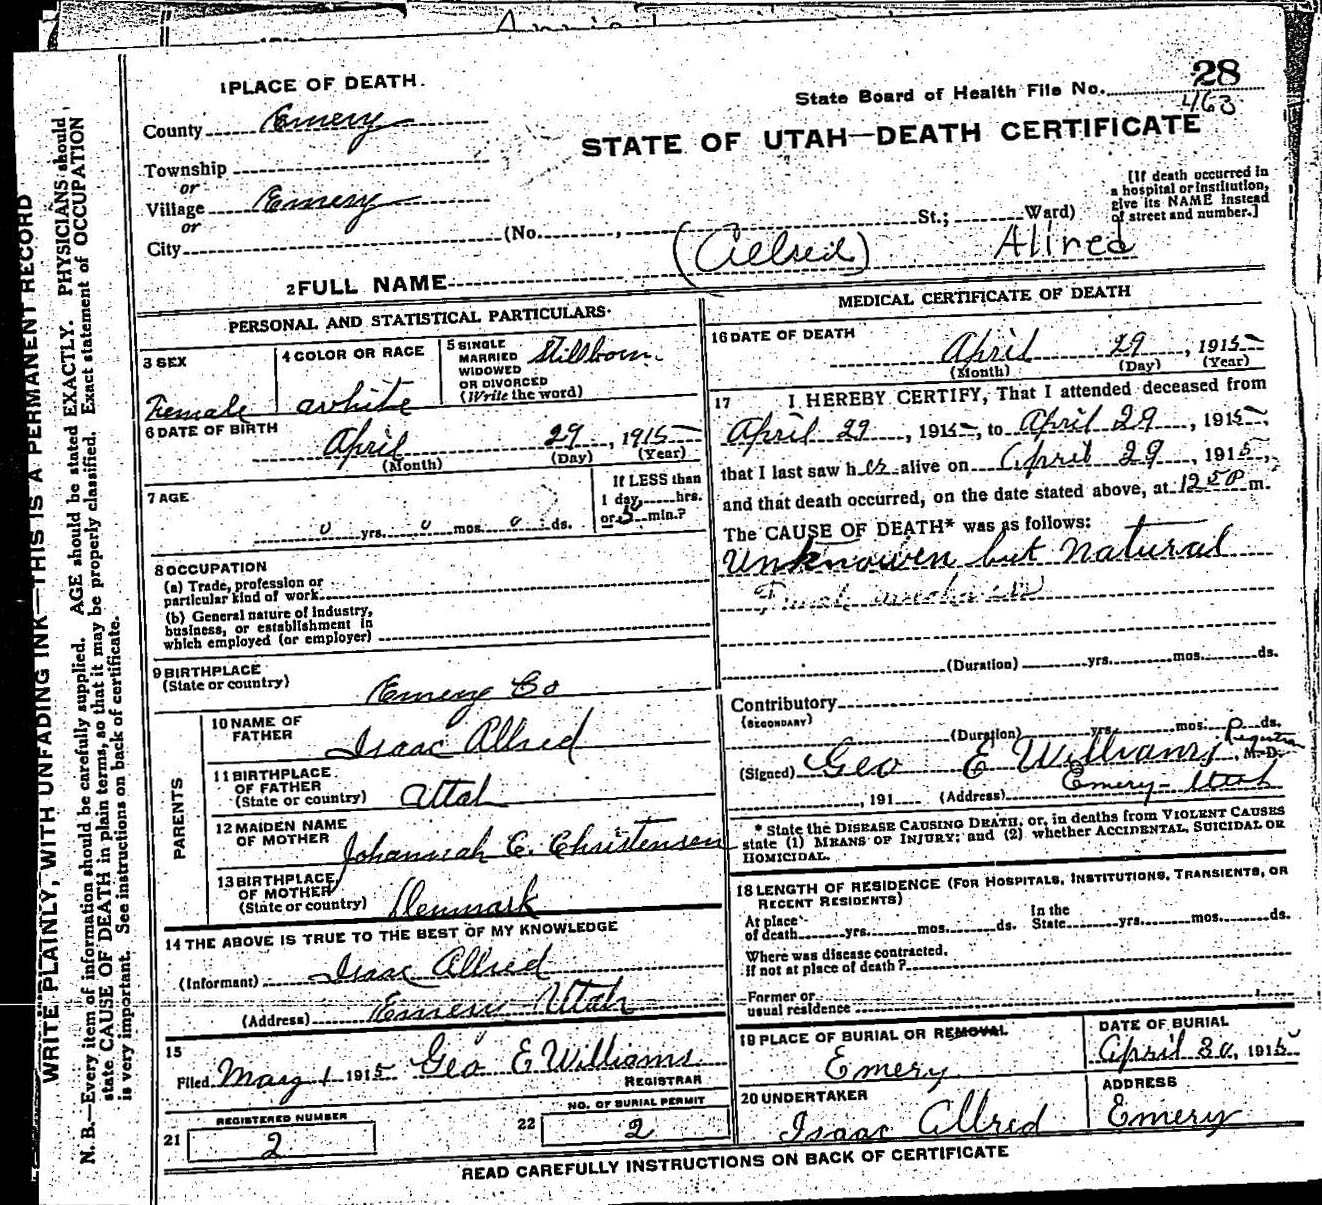 WRITE PLAINLY, WITH UNFADING INK—THIS IS A PERMANENT RECORD
N. B.—Every item of information should be carefully supplied. AGE should be stated EXACTLY. PHYSICIANS should
state CAUSE OF DEATH in plain terms, so that it may be properly classified. Exact statement of OCCUPATION
is very important. See instructions on back of certificate.
1 PLACE OF DEATH.
County Emery
Township
or
Village Emery
or
City
(No. , St.; Ward)
State Board of Health File No. 28
463
STATE OF UTAH—DEATH CERTIFICATE
[If death occurred in
a hospital or institution,
give its NAME instead
of street and number.]
2 FULL NAME (Allred) Allred
PERSONAL AND STATISTICAL PARTICULARS
3 SEX
Female
4 COLOR OR RACE
white
5 SINGLE
MARRIED
WIDOWED
OR DIVORCED
(Write the word)
Stillborn.
6 DATE OF BIRTH
April 29, 1915
(Month) (Day) (Year)
7 AGE
0 yrs. 0 mos. 0 ds.
If LESS than
1 day, hrs.
or min.?
8 OCCUPATION
(a) Trade, profession or
particular kind of work
(b) General nature of industry,
business, or establishment in
which employed (or employer)
9 BIRTHPLACE
(State or country)
Emery Co
PARENTS
10 NAME OF
FATHER
Isaac Allred
11 BIRTHPLACE
OF FATHER
(State or country)
Utah
12 MAIDEN NAME
OF MOTHER
Johannah E. Christensen
13 BIRTHPLACE
OF MOTHER
(State or country)
Denmark
14 THE ABOVE IS TRUE TO THE BEST OF MY KNOWLEDGE
(Informant) Isaac Allred
(Address) Emery Utah
15
Filed May 1 1915 Geo E Williams
REGISTRAR
21 REGISTERED NUMBER
2
22 NO. OF BURIAL PERMIT
2
MEDICAL CERTIFICATE OF DEATH
16 DATE OF DEATH
April 29, 1915
(Month) (Day) (Year)
17 I HEREBY CERTIFY, That I attended deceased from
April 29, 1915, to April 29, 1915,
that I last saw her alive on April 29, 1915,
and that death occurred, on the date stated above, at 1250P m.
The CAUSE OF DEATH* was as follows:
Unknowen but natural
(Duration) yrs. mos. ds.
Contributory
(SECONDARY)
(Duration) yrs. mos. ds.
Registrar
(Signed) Geo E Williams, M. D.
, 191 (Address) Emery-Utah
* State the DISEASE CAUSING DEATH, or, in deaths from VIOLENT CAUSES
state (1) MEANS OF INJURY; and (2) whether ACCIDENTAL, SUICIDAL OR
HOMICIDAL.
18 LENGTH OF RESIDENCE (FOR HOSPITALS, INSTITUTIONS, TRANSIENTS, OR
RECENT RESIDENTS)
At place
of death yrs. mos. ds.
In the
State yrs. mos. ds.
Where was disease contracted.
if not at place of death?
Former or
usual residence
19 PLACE OF BURIAL OR REMOVAL
Emery
DATE OF BURIAL
April 30, 1915
20 UNDERTAKER
Isaac Allred
ADDRESS
Emery
READ CAREFULLY INSTRUCTIONS ON BACK OF CERTIFICATE